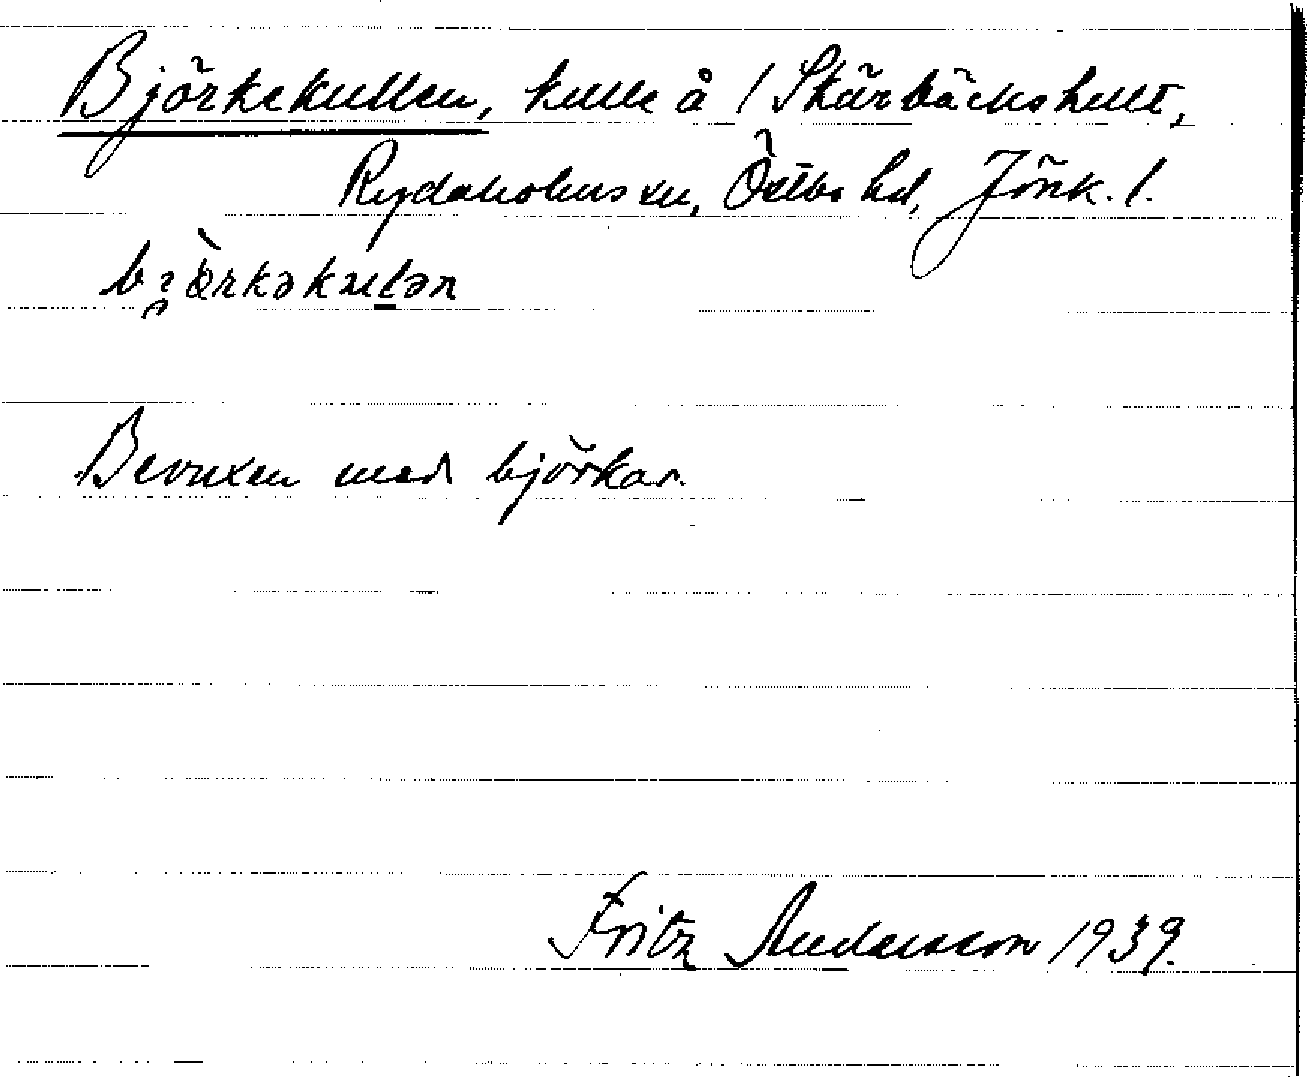 Björkekullen, kulle å 1 Skärbäckshult,
Rydaholms sn, Östbo hd, Jönk. l.
Bevuxen med björkar.
Fritz Andersson 1939.